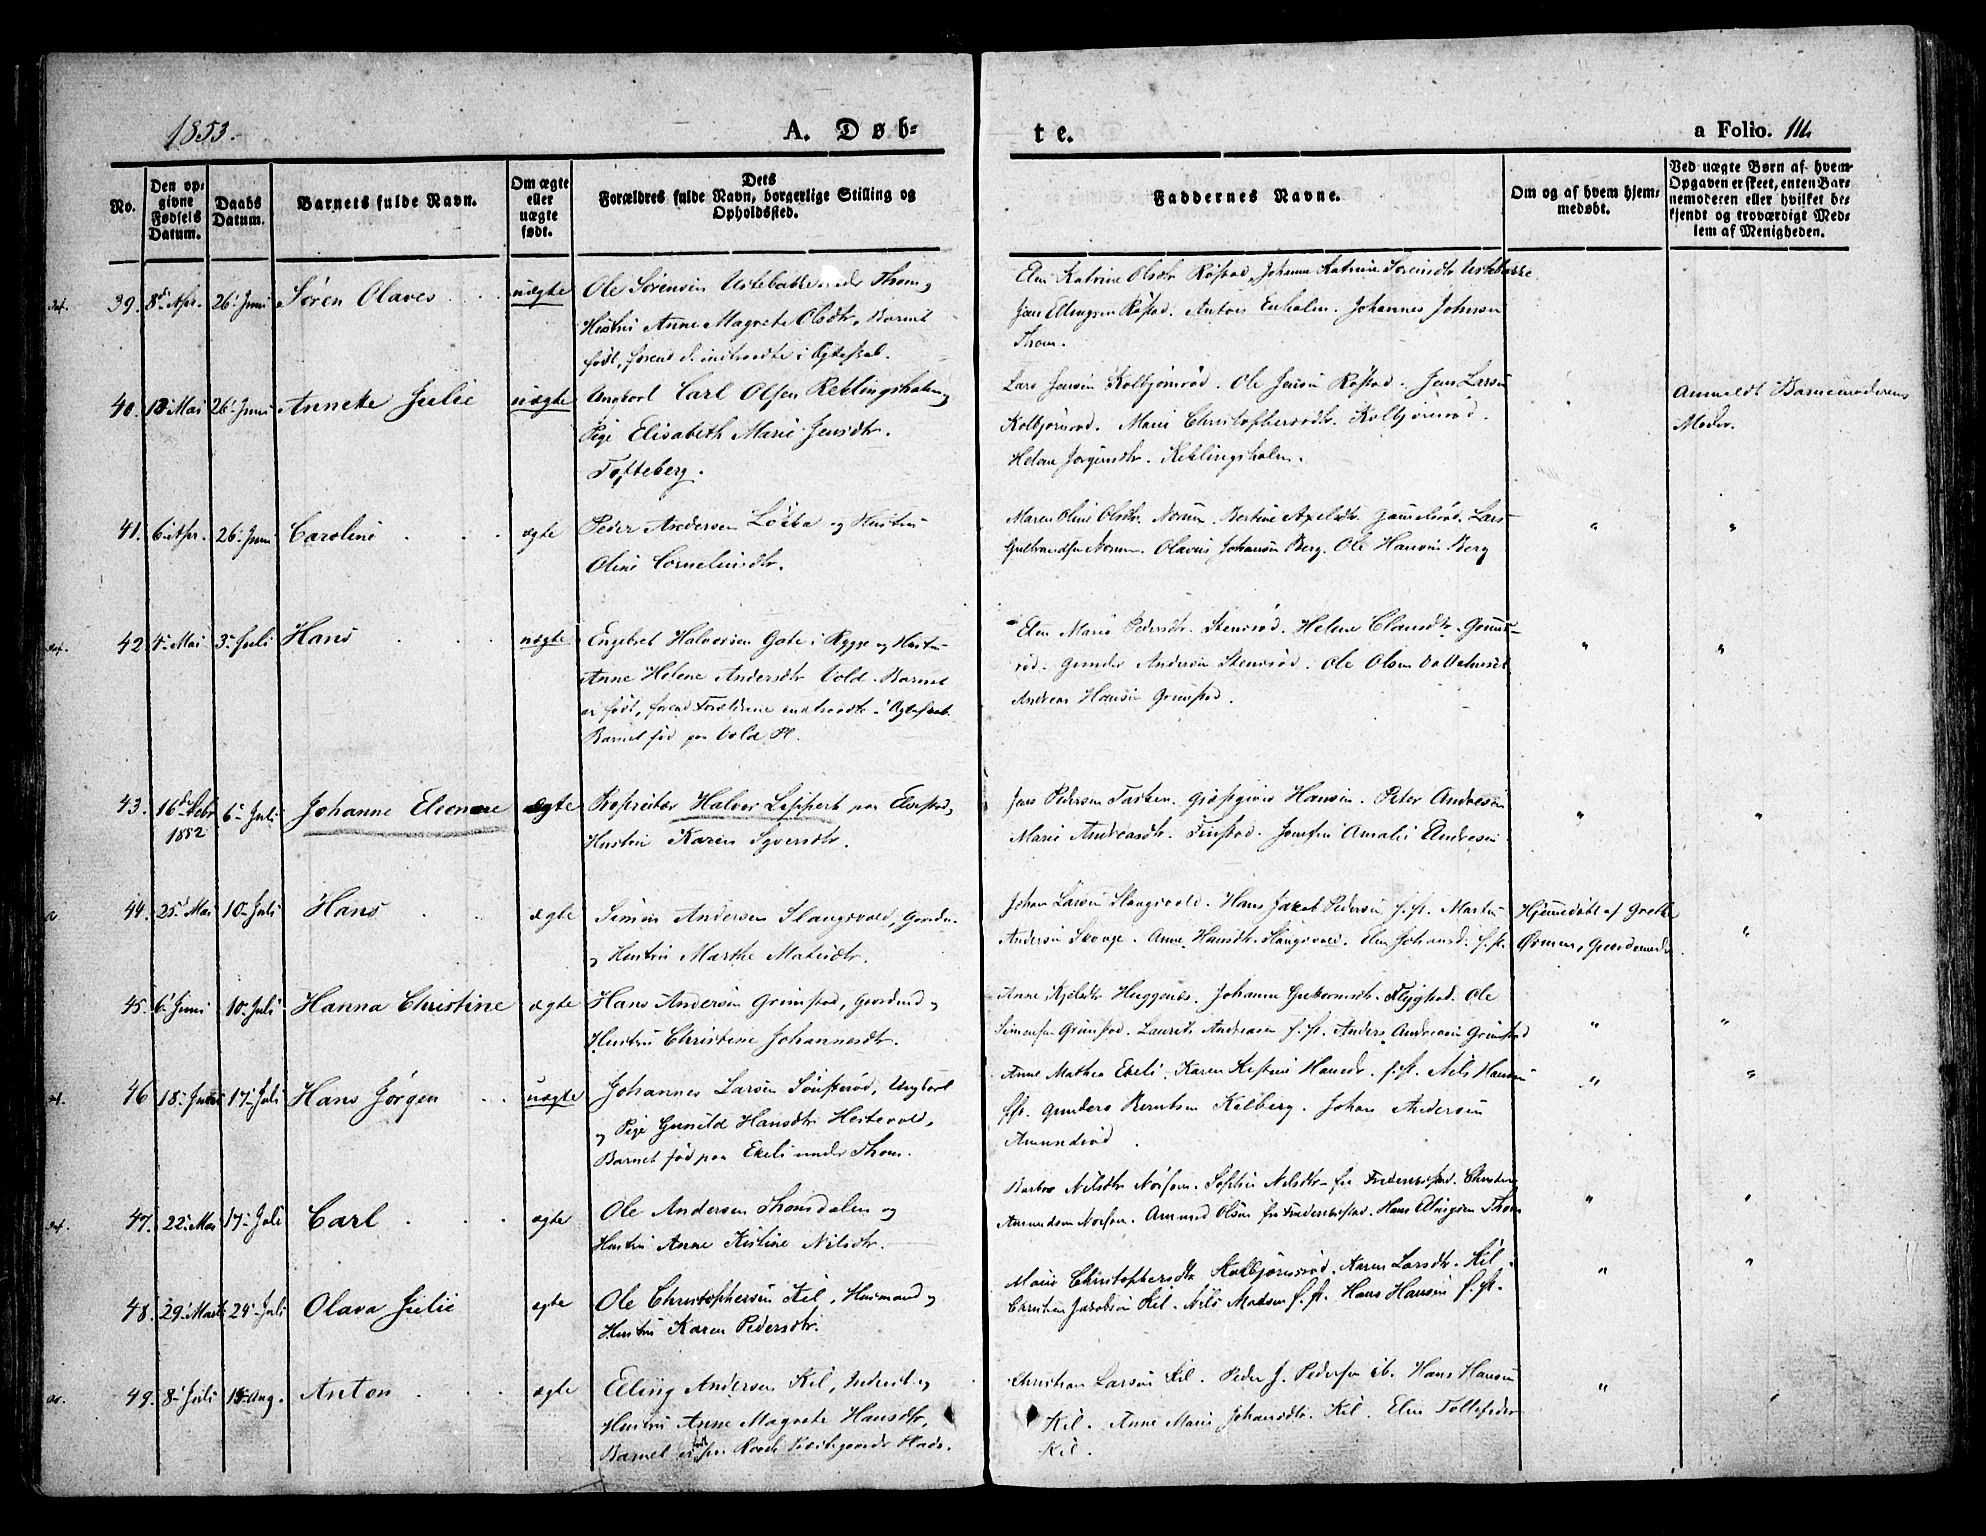 1853.
A. Døb-
te.
a Folio. 111.
No.
Den op-
givne
Fødsels
Datum.
Daabs
Datum.
Barnets fulde Navn.
Om ægte
eller
uægte
født.
Dets
Forældres fulde Navn, borgerlige Stilling og
Opholdssted.
Faddernes Navne.
Om og af hvem hjem-
medøbt.
Ved uægte Børn af hvem
Opgaven er skeet, enten Bar-
nemoderen eller hvilket be-
kjendt og troværdigt Med-
lem af Menigheden.
39. 8de Apr. 26. Juni Søren Olaves uægte Ole Sørensen under Thom og
Hustru Anne Magrete Olsdtr, Barnet
født, førend d. indtraadte i Ægteskab.
Elen Katrine Olsdtr Røstad, Johanne Katrine Sørensdtr
Jens Ellingsen Røstad. Johannes Johnsen
Thom.
40. Mai 26. Juni Anneke Julie uægte Ungkarl Carl Olsen Reklingsholm og
Pige Elisabeth Marie Jensdtr.
Tofteberg.
Lars Jensen Kolbjørnsrød. Ole Jensen Røstad. Jens Larsen
Kolbjørnsrød. Marie Christophersdtr. Kolbjørnsrød.
Helene Jørgensdtr. Reklingsholm.
Anmeldt Barnemoderens
Moder.
41. 6. Apr. 26. Juni Caroline ægte Peder Andersen og Hustru
Oline Corneliusdtr.
Maren Oline Olsdtr. Norum. Bertine Axelsdtr. Lars
Gulbrandsen Norum. Olaves Johansen Berg. Ole Hansen Berg
" "
42. 4. Mai 3. Juli Hans uægte Engebret Halvorsen Gate i Rygge og Hustru
Anne Helene Andersdtr Vold. Barnet
er født, førend Forældrene indtraadte i Ægteskab.
Barnet fød paa Vold Pl.
Elen Marie Pedersdtr. Stensrød. Helene Clausdtr.
Gunder Andersen Stensrød. Ole Olsen
Andreas Hansen Grimstad.
" "
43. 16d Febr 1852 6. Juli Johanne Eleonore ægte Proprietær Halvor Leppert paa Elvestad,
Hustru Karen Syversdtr.
Jens Pedersen Hansen. Peter Andresen
Marie Andreasdtr. Finstad. Josefin Amalie Andresen
" "
44. 25. Mai 10. Juli Hans ægte Simen Andersen Slangsvold, Gaardm.
og Hustru Marthe Matisdtr.
Johan Larsen Slangsvold. Hans Jacob Pedersen f. st. Martin
Andersen Skouge. Anne Hansdtr. Slangsvold. Elen Johansd. f. st.
Hjemmedøbt af Grethe
"
45. 6. Juni 10. Juli Hanna Christine ægte Hans Andersen Grimstad, Gaardmd og
Hustru Christine Johannesdtr.
Anne Kjelsdtr Huggenes. Johanne Guttormsdtr. Ole
Simensen Grimstad. Laurits Andreasen f. st. Anders Andreasen Grimstad
" "
46 18. 17. Juli Hans Jørgen uægte Johannes Larsen Ungkarl
og Pige Gunild Hansdtr Hestevold,
Barnet fød paa Ekeli under Thom.
Anne Mathea Ekeli. Karen Kistine Hansdr. f. st. Nils Hansen
f. st. Gunders Berntsen Kelberg. Johan Andersen
Amundrød.
" "
47. 22. Mai 17. Juli Carl ægte Ole Andersen Thomsdalen og
Hustru Anne Kistine Nilsdtr.
Barbro Nilsdtr Norsom. Sophie Nilsdtr fra Frederikstad. Christen
Amundsen Norsom. Amund Olsen fra Frederikstad. Hans Ellingsen Thom
" "
48. 29. Marts 24. Juli Olava Julie ægte Ole Christophersen Kil, Husmand og
Hustru Karen Pedersdtr.
Marie Christophersdtr Kolbjørnsrød. Karen Larsdtr. Kil.
Christian Jacobsen Kil. Nils Madsen f. st. Hans Hansen f. st.
" "
49. 8. Juli 15. Aug. Anton ægte Elling Andersen Kil, Inderst og
Hustru Anne Magrete Hansdtr,
Barnet er født paa Præstegaards Plads.
Christian Larsen Kil. Peder J. Pedersen ib. Hans Hansen
Kil. Anne Marie Johansdtr. Kil. Elen
Kil.
" "